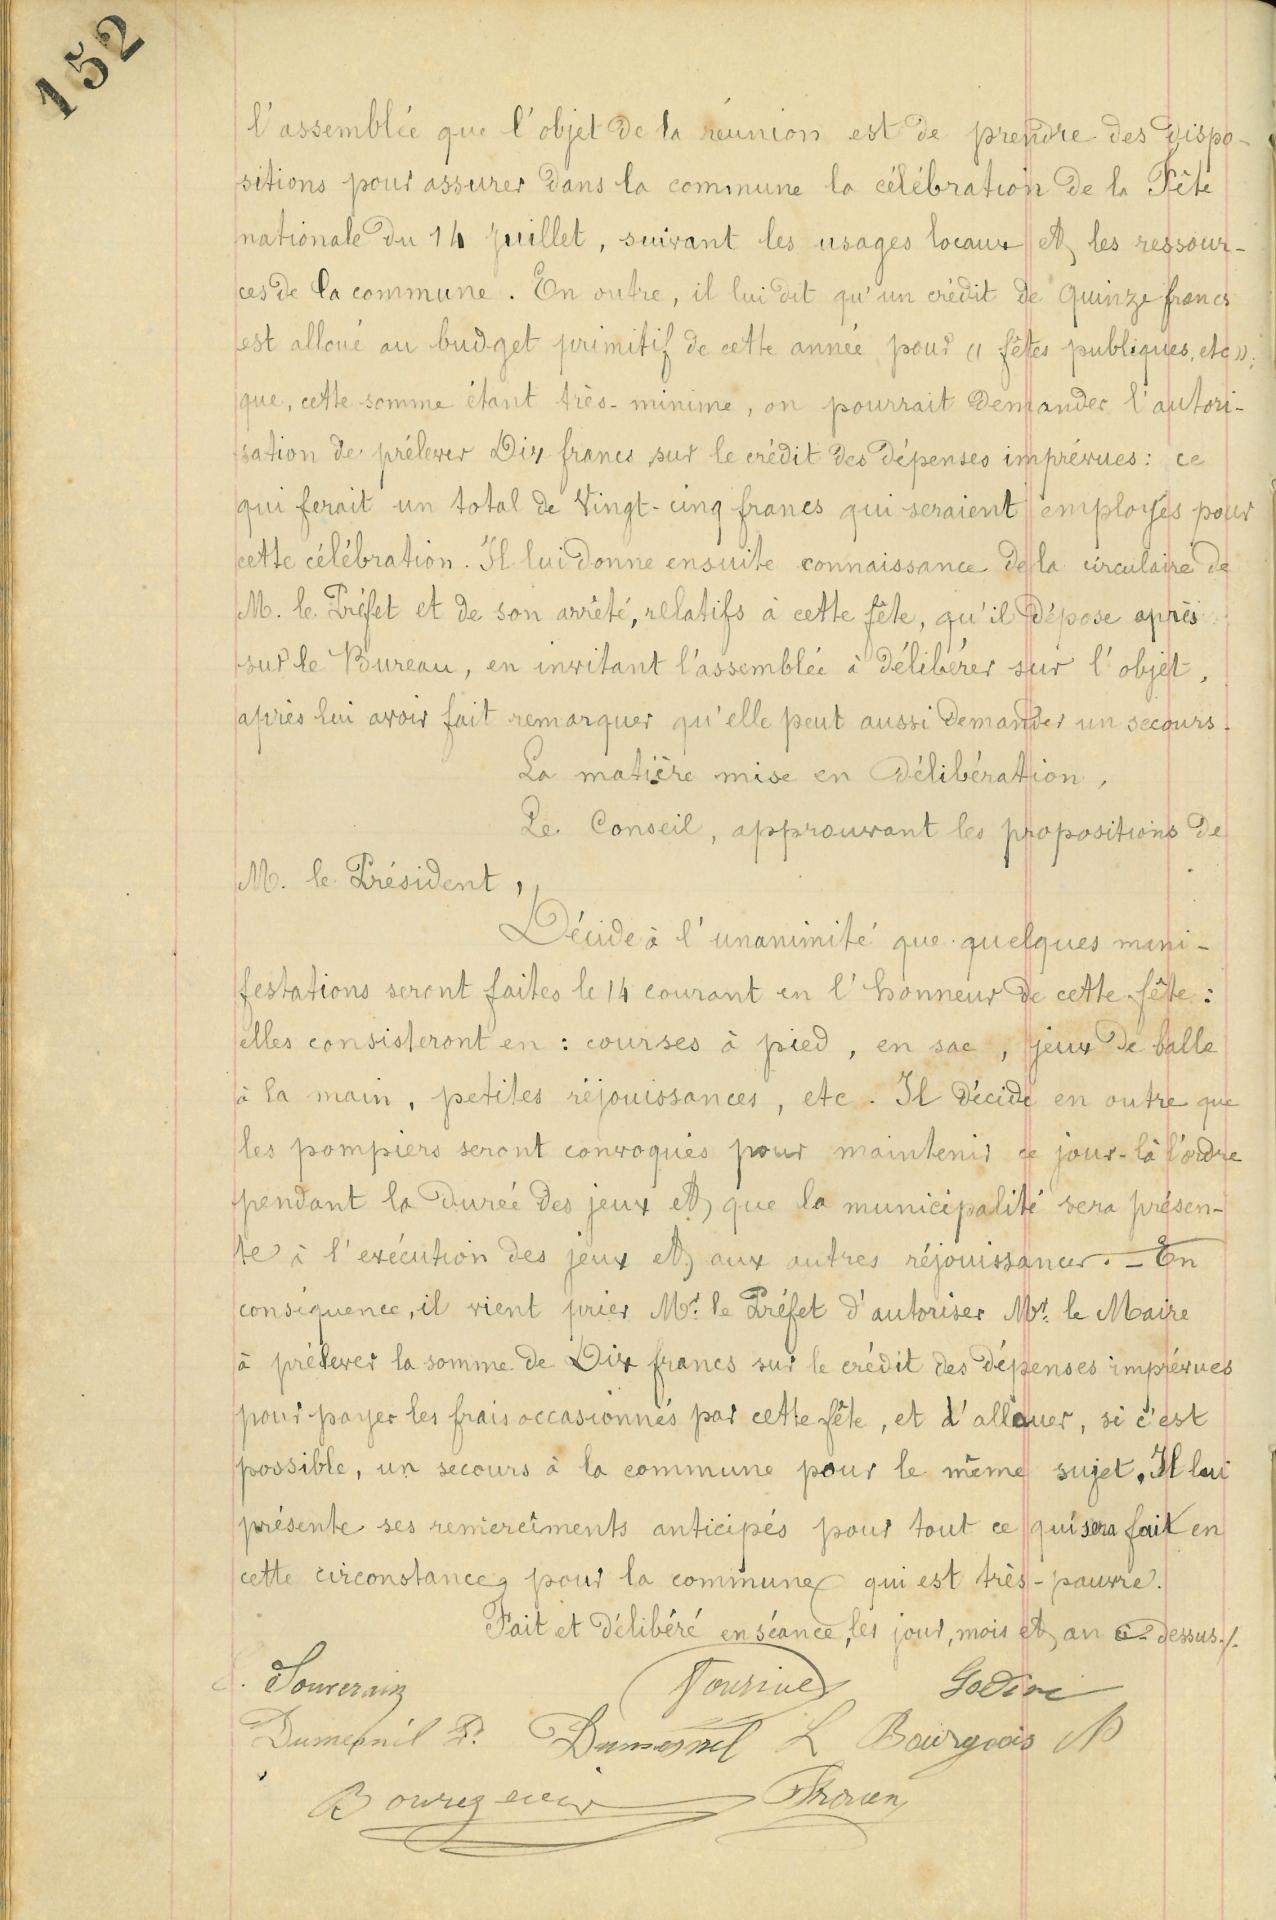 152
l'assemblée que l'objet de la réunion est de prendre des dispo-
sitions pour assurer dans la commune la célébration de la Fête
nationale du 14 juillet, suivant les usages locaux et les ressour-
ces de la commune. En outre, il lui dit qu'un crédit de Quinze francs
est alloué au budget primitif de cette année pour « fêtes publiques, etc »;
que, cette somme étant très-minime, on pourrait demander l'autori-
sation de prélever Dix francs sur le crédit des dépenses imprévues: ce
qui ferait un total de Vingt-cinq francs qui seraient employés pour
cette célébration. Il lui donne ensuite connaissance de la circulaire de
M. le Préfet et de son arrêté, relatifs à cette fête, qu'il dépose après
sur le Bureau, en invitant l'assemblée à délibérer sur l'objet,
après lui avoir fait remarquer qu'elle peut aussi demander un secours.
La matière mise en délibération,
Le Conseil, approuvant les propositions de
M. le Président,
Décide à l'unanimité que quelques mani-
festations seront faites le 14 courant en l'honneur de cette fête:
elles consisteront en: courses à pied, en sac, jeux de balle
à la main, petites réjouissances, etc. Il décide en outre que
les pompiers seront convoqués pour maintenir ce jour-là l'ordre
pendant la durée des jeux et que la municipalité sera présen-
te à l'exécution des jeux et aux autres réjouissances. - En
conséquence, il vient prier Mr. le Préfet d'autoriser Mr. le Maire
à prélever la somme de Dix francs sur le crédit des dépenses imprévues
pour payer les frais occasionnés par cette fête, et d'allouer, si c'est
possible, un secours à la commune pour le même sujet. Il lui
présente ses remerciments anticipés pour tout ce qui sera fait en
cette circonstance, pour la commune qui est très-pauvre.
Fait et délibéré en séance, les jour, mois et an ci-dessus./.
Souverain Godin
Dumesnil P. Dumesnil L Bourgeois N